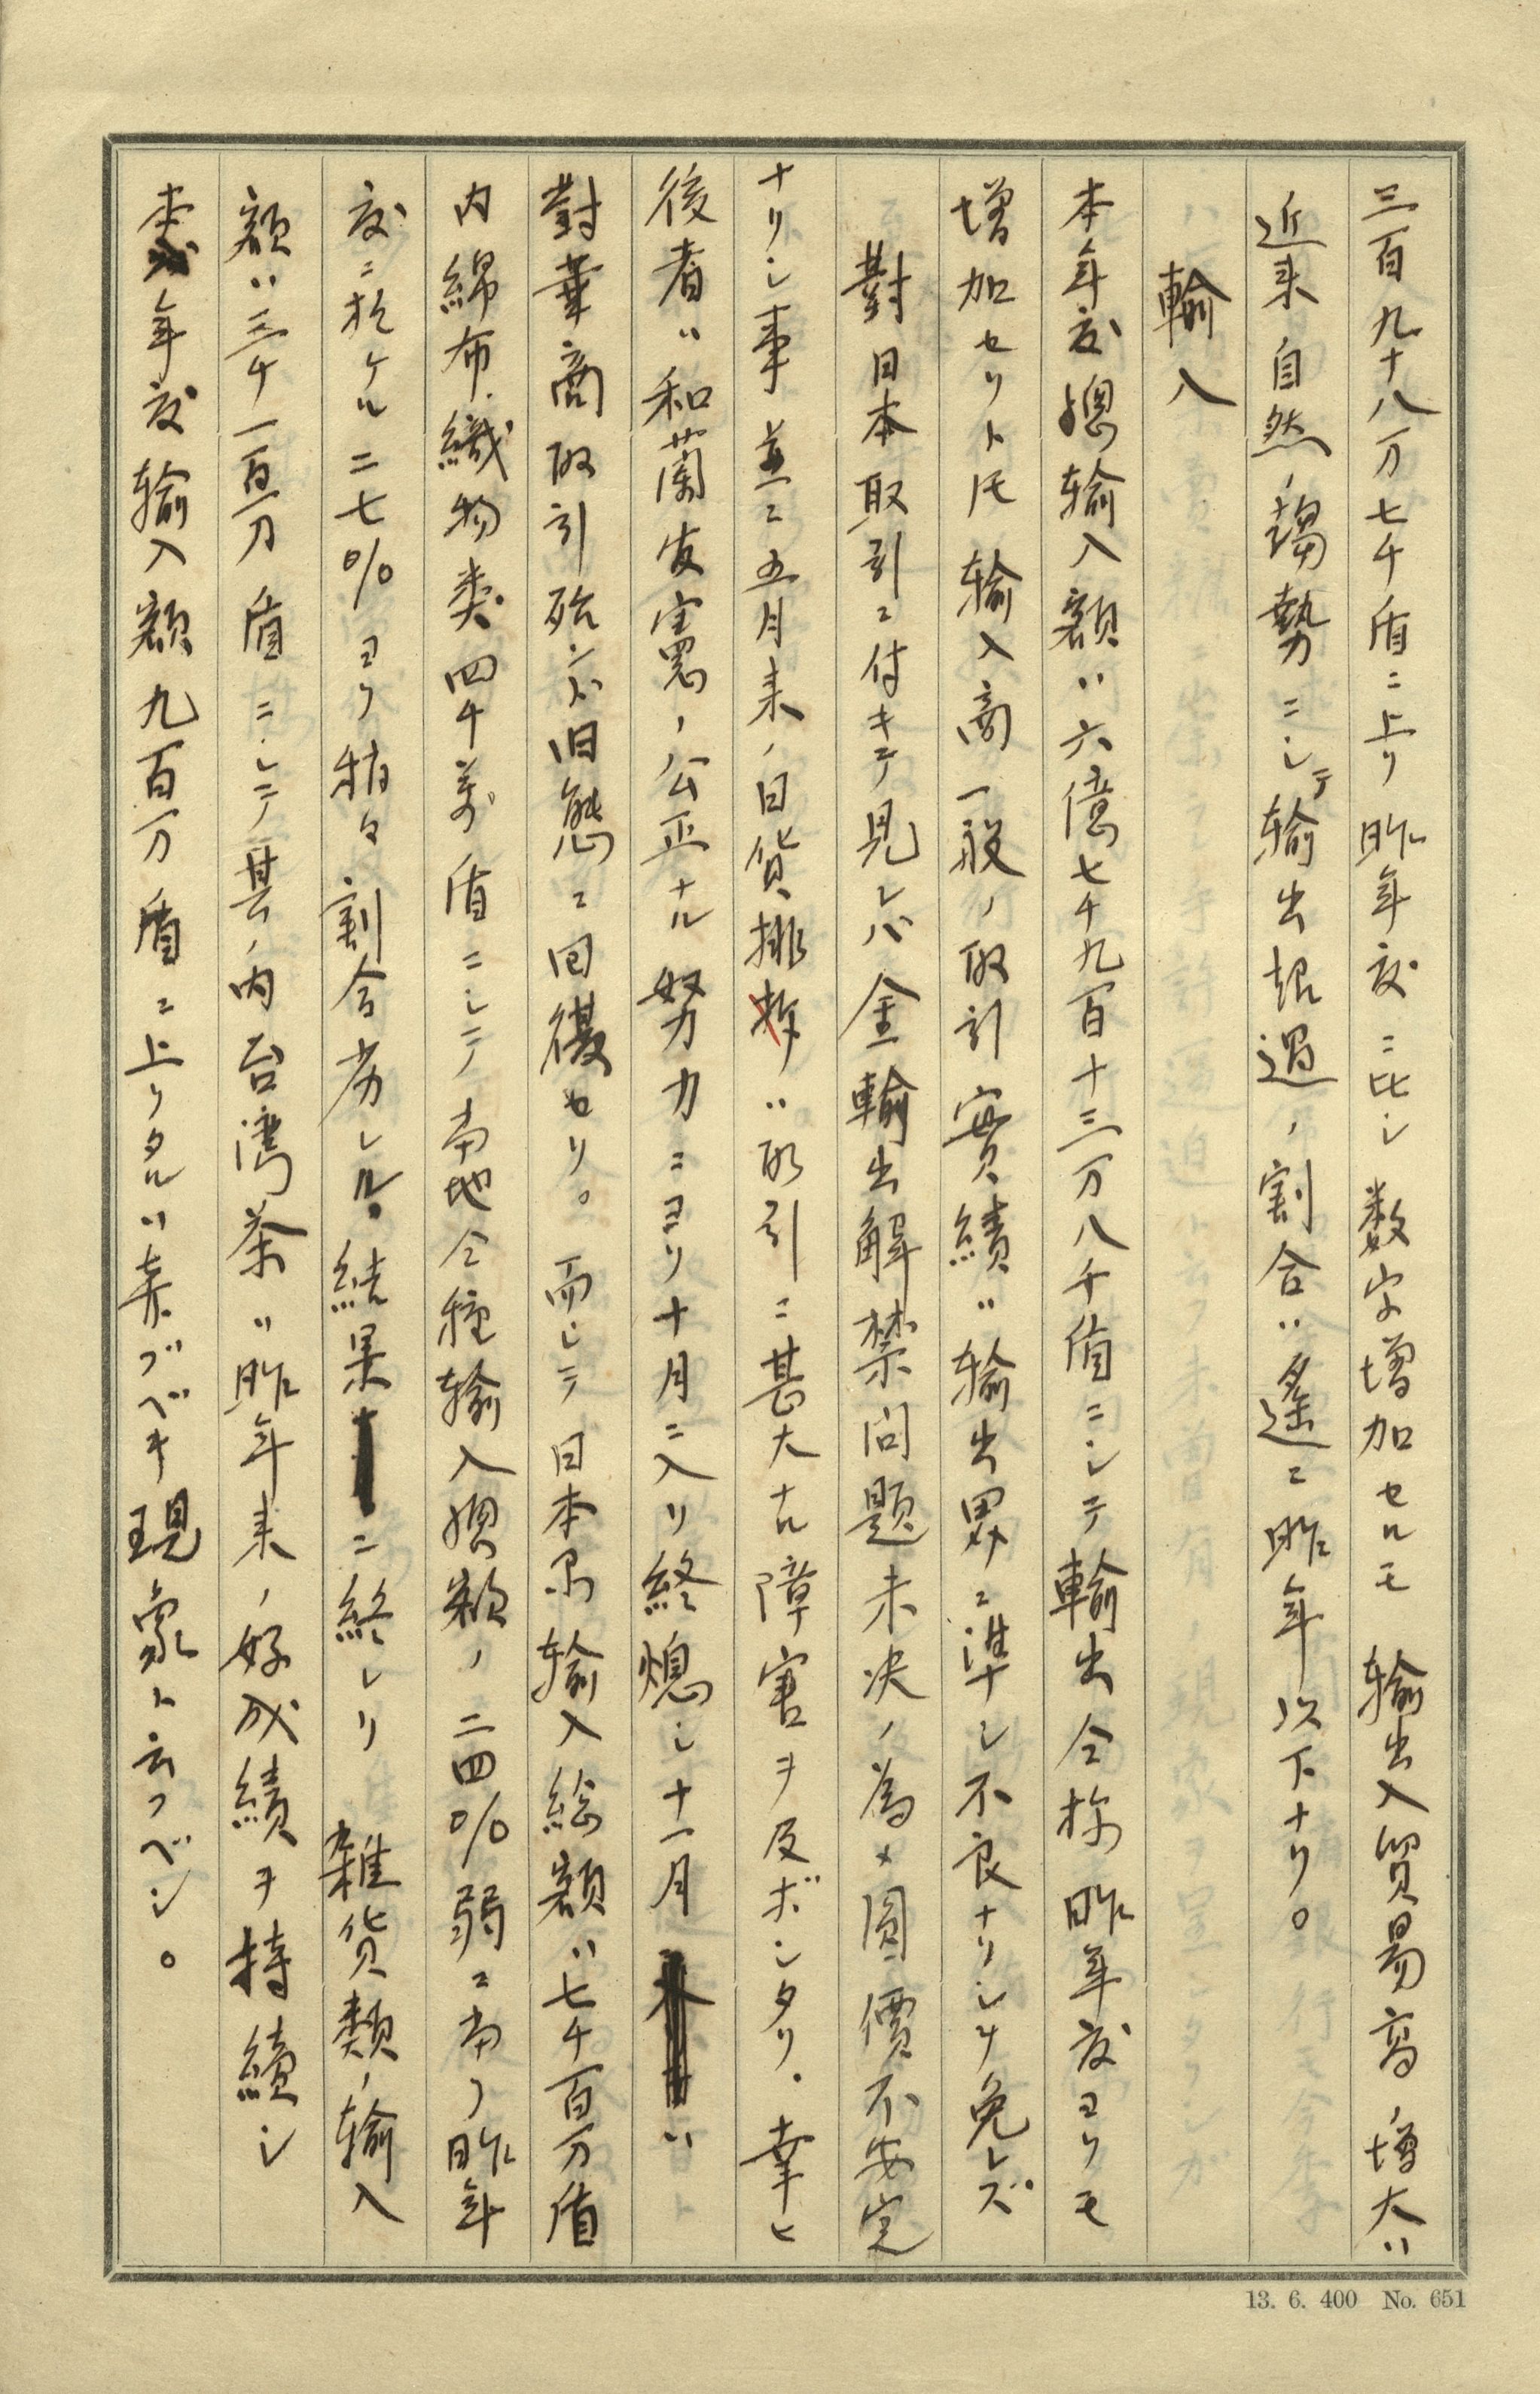 三百九十八万七千盾ニ上リ昨年度ニ比シ数字増加セルモ輸出入貿易高ノ増大ハ
近来自然ノ趨勢ニシテ輸出超過ノ割合ハ遙ニ昨年以下ナリ。
輸入
本年度総輸入額ハ六億七千九百十三万八千盾ニシテ輸出仝様昨年度ヨリモ
増加セリトモ輸入商一般ノ取引實績ハ輸出界ニ準シ不良ナリシヲ免レズ
對日本取引ニ付キテ見レバ金輸出解禁問題未決ノ為メ圓價不安定
ナリシ事並ニ五月来ノ日貨排斥ハ取引ニ甚大ナル障害ヲ及ボシタリ.幸ヒ
後者ハ和蘭官憲ノ公正ナル努力ニヨリ十月ニ入リ終熄シ十一月ハ
對華商取引殆ンド旧態ニ回復セリ。而シテ日本品輸入総額ハ七千百万盾
内綿布.織物類四千萬盾ニシテ当地仝種輸入総額ノ二四%弱ニ当リ昨年
度ニ於ケル二七%ヨリ稍々割合劣レル結果ニ終レリ雑貨類ノ輸入
額ハ三千一百万盾ニシテ其ノ内台湾茶ハ昨年来ノ好成績ヲ持續シ
本年度輸入額九百万盾ニ上リタルハ喜ブベキ現象ト云フベシ。
13. 6. 400 No. 651